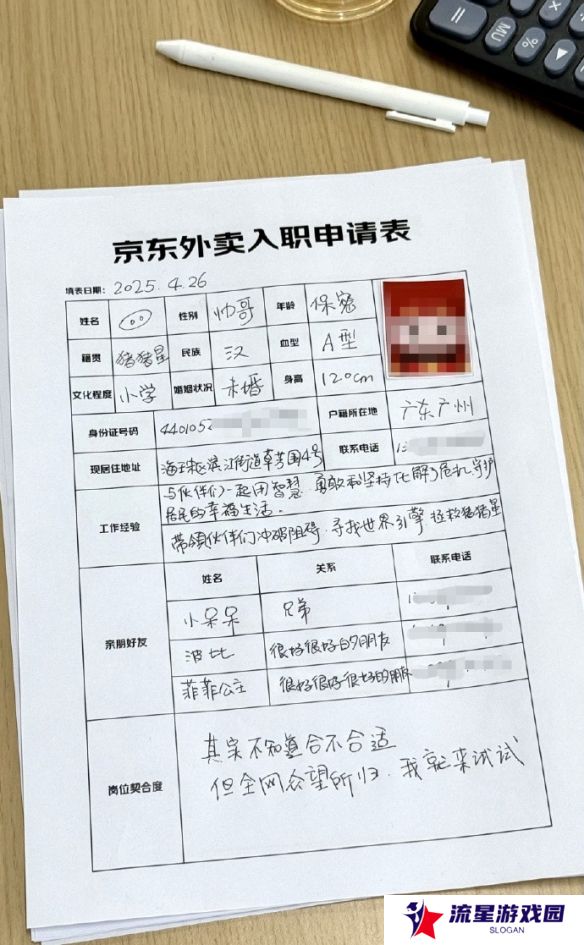 京东外卖入职申请表
填表日期: 2025.4.26
姓名 性别 帅哥 年龄 保密
籍贯 猪猪星 民族 汉 血型 A型
文化程度 小学 婚姻状况 未婚 身高 120cm
身份证号码 440105 户籍所在地 广东广州
现居住地址 海珠区滨江街道草芳围4号 联系电话 1
工作经验
与伙伴们一起用智慧、勇敢和坚持化解危机,守护
居民的幸福生活。
带领伙伴们冲破阻碍,寻找世界引擎,拯救猪猪星
亲朋好友
姓名 关系 联系电话
小呆呆 兄弟 1
波比 很好很好的朋友
菲菲公主 很好很好很好的朋
岗位契合度
其实不知道合不合适
但全网众望所归,我就来试试
MU
%
流星游戏园
SLOGAN